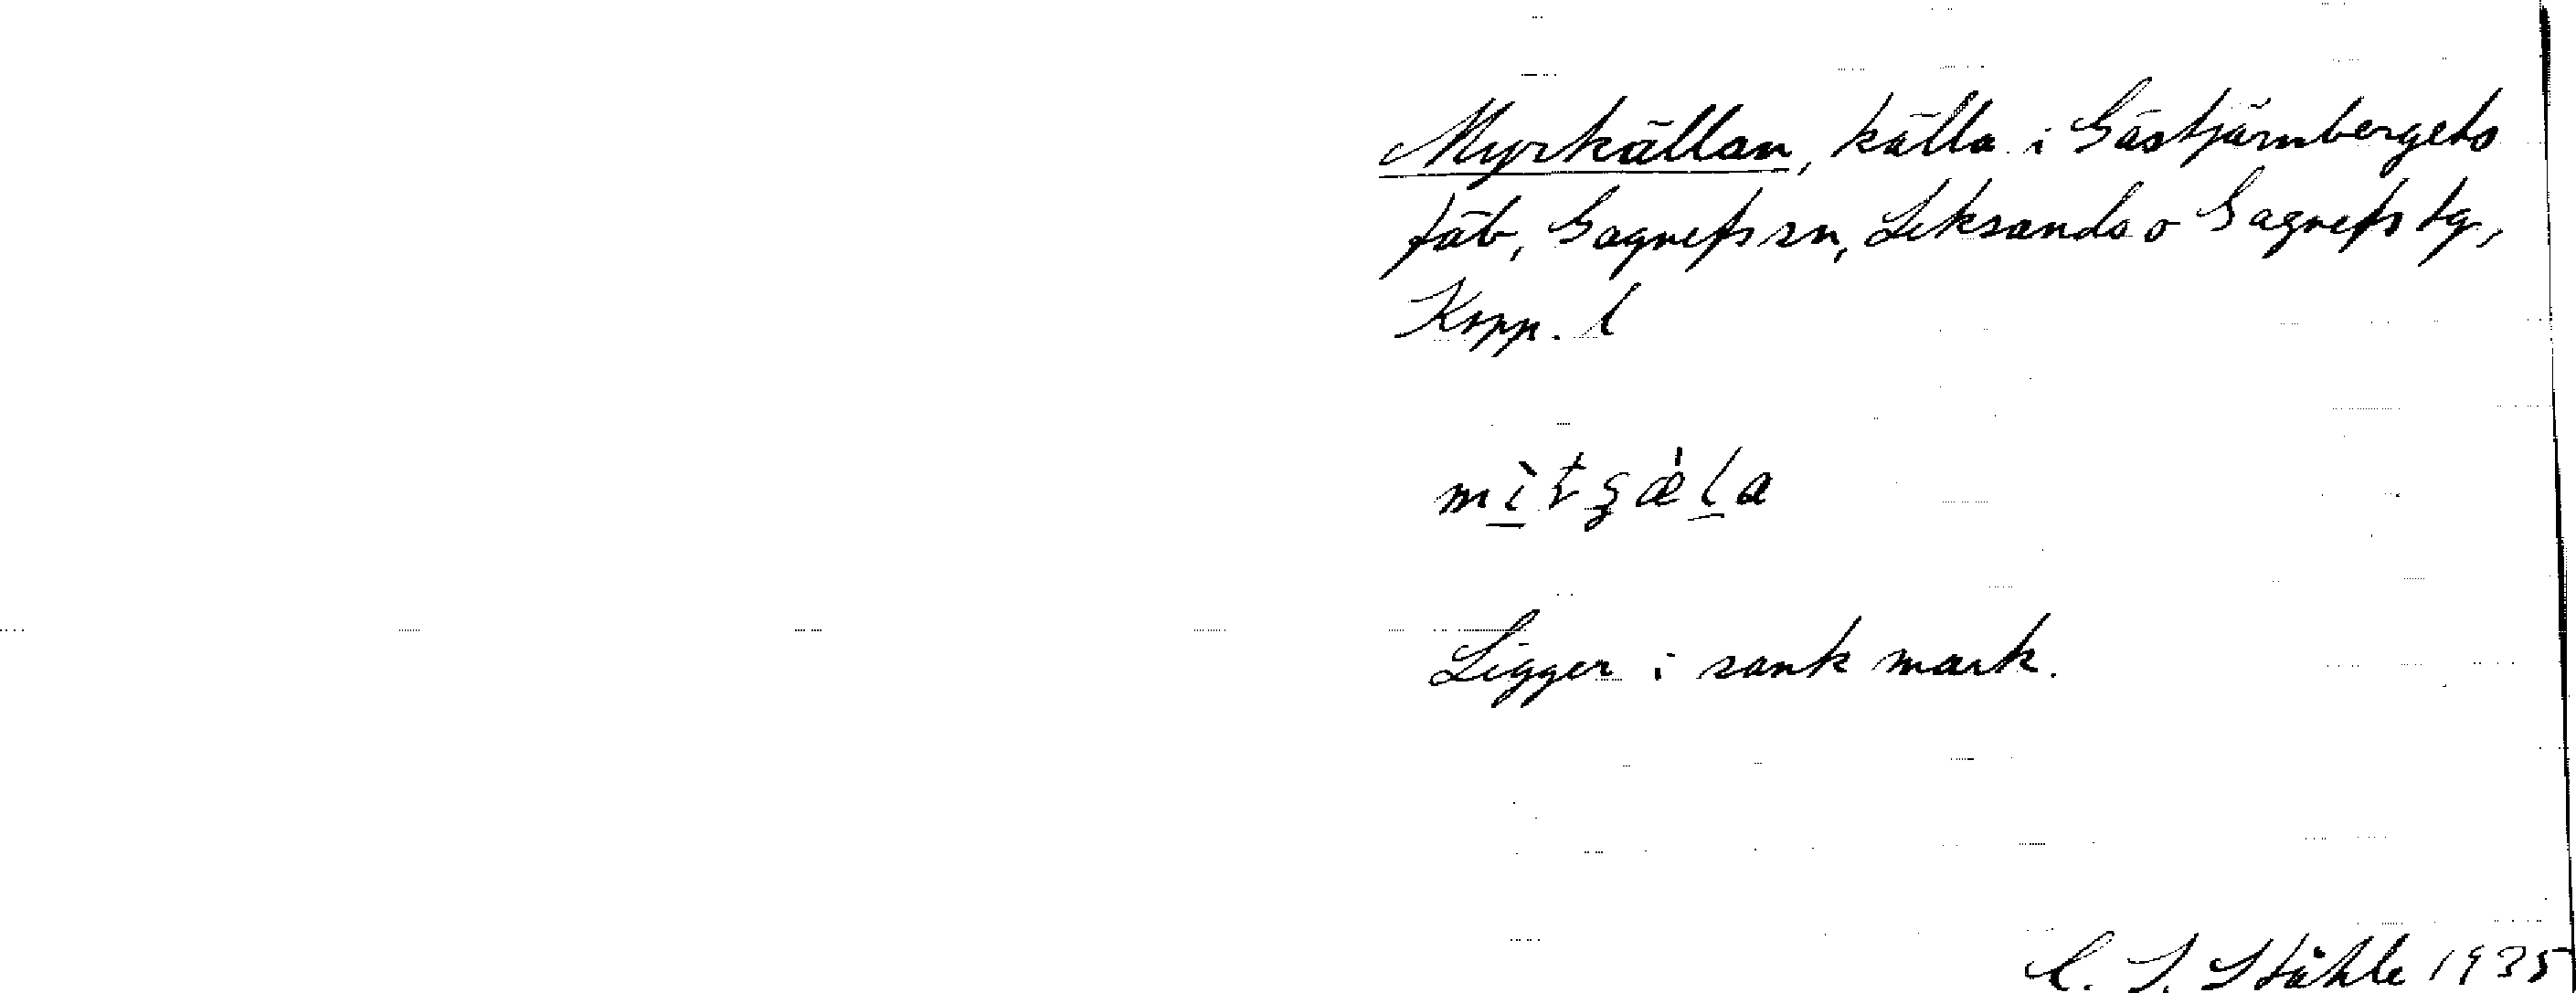 Myrkällan, källa i Gåstjärnbergets
fäb, Gagnefs sn, Leksands o Gagnefs tg,
Kopp. l
Ligger i sank mark.
C. I. Ståhle 1935